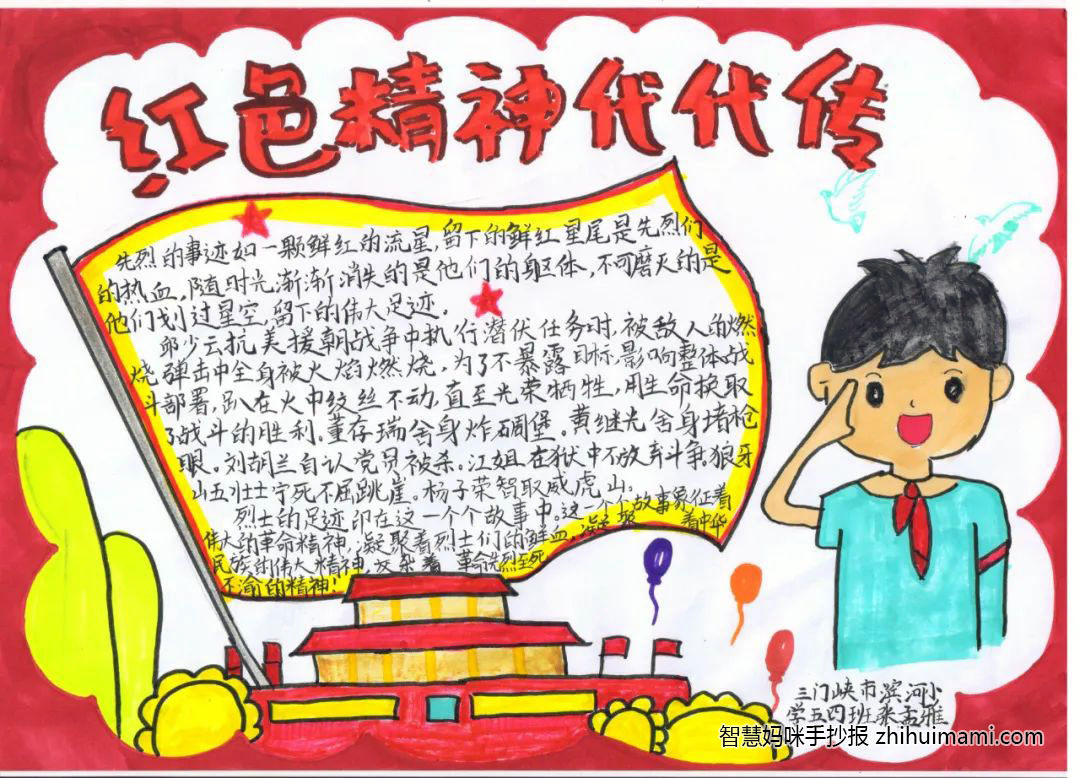 红色精神代代传
先烈的事迹如一颗鲜红的流星,留下的鲜红星尾是先烈们
的热血,随时光渐渐消失的是他们的躯体,不可磨灭的是
他们划过星空,留下的伟大足迹。
邱少云抗美援朝战争中执行潜伏任务时,被敌人的燃
烧弹击中全身被火焰燃烧,为了不暴露目标,影响整体战
斗部署,趴在火中纹丝不动,直至光荣牺牲,用生命换取
了战斗的胜利。董存瑞舍身炸碉堡。黄继光舍身堵枪
眼。刘胡兰自认党员被杀。江姐在狱中不放弃斗争。狼牙
山五壮士宁死不屈跳崖。杨子荣智取威虎山。
烈士的足迹印在这一个个故事中。这一个个故事象征着
伟大的革命精神,凝聚着烈士们的鲜血,凝聚着中华
民族的伟大精神,交织着革命先烈至死
不渝的精神!
三门峡市滨河小
学五四班张孟雅
智慧妈咪手抄报 zhihuimami.com